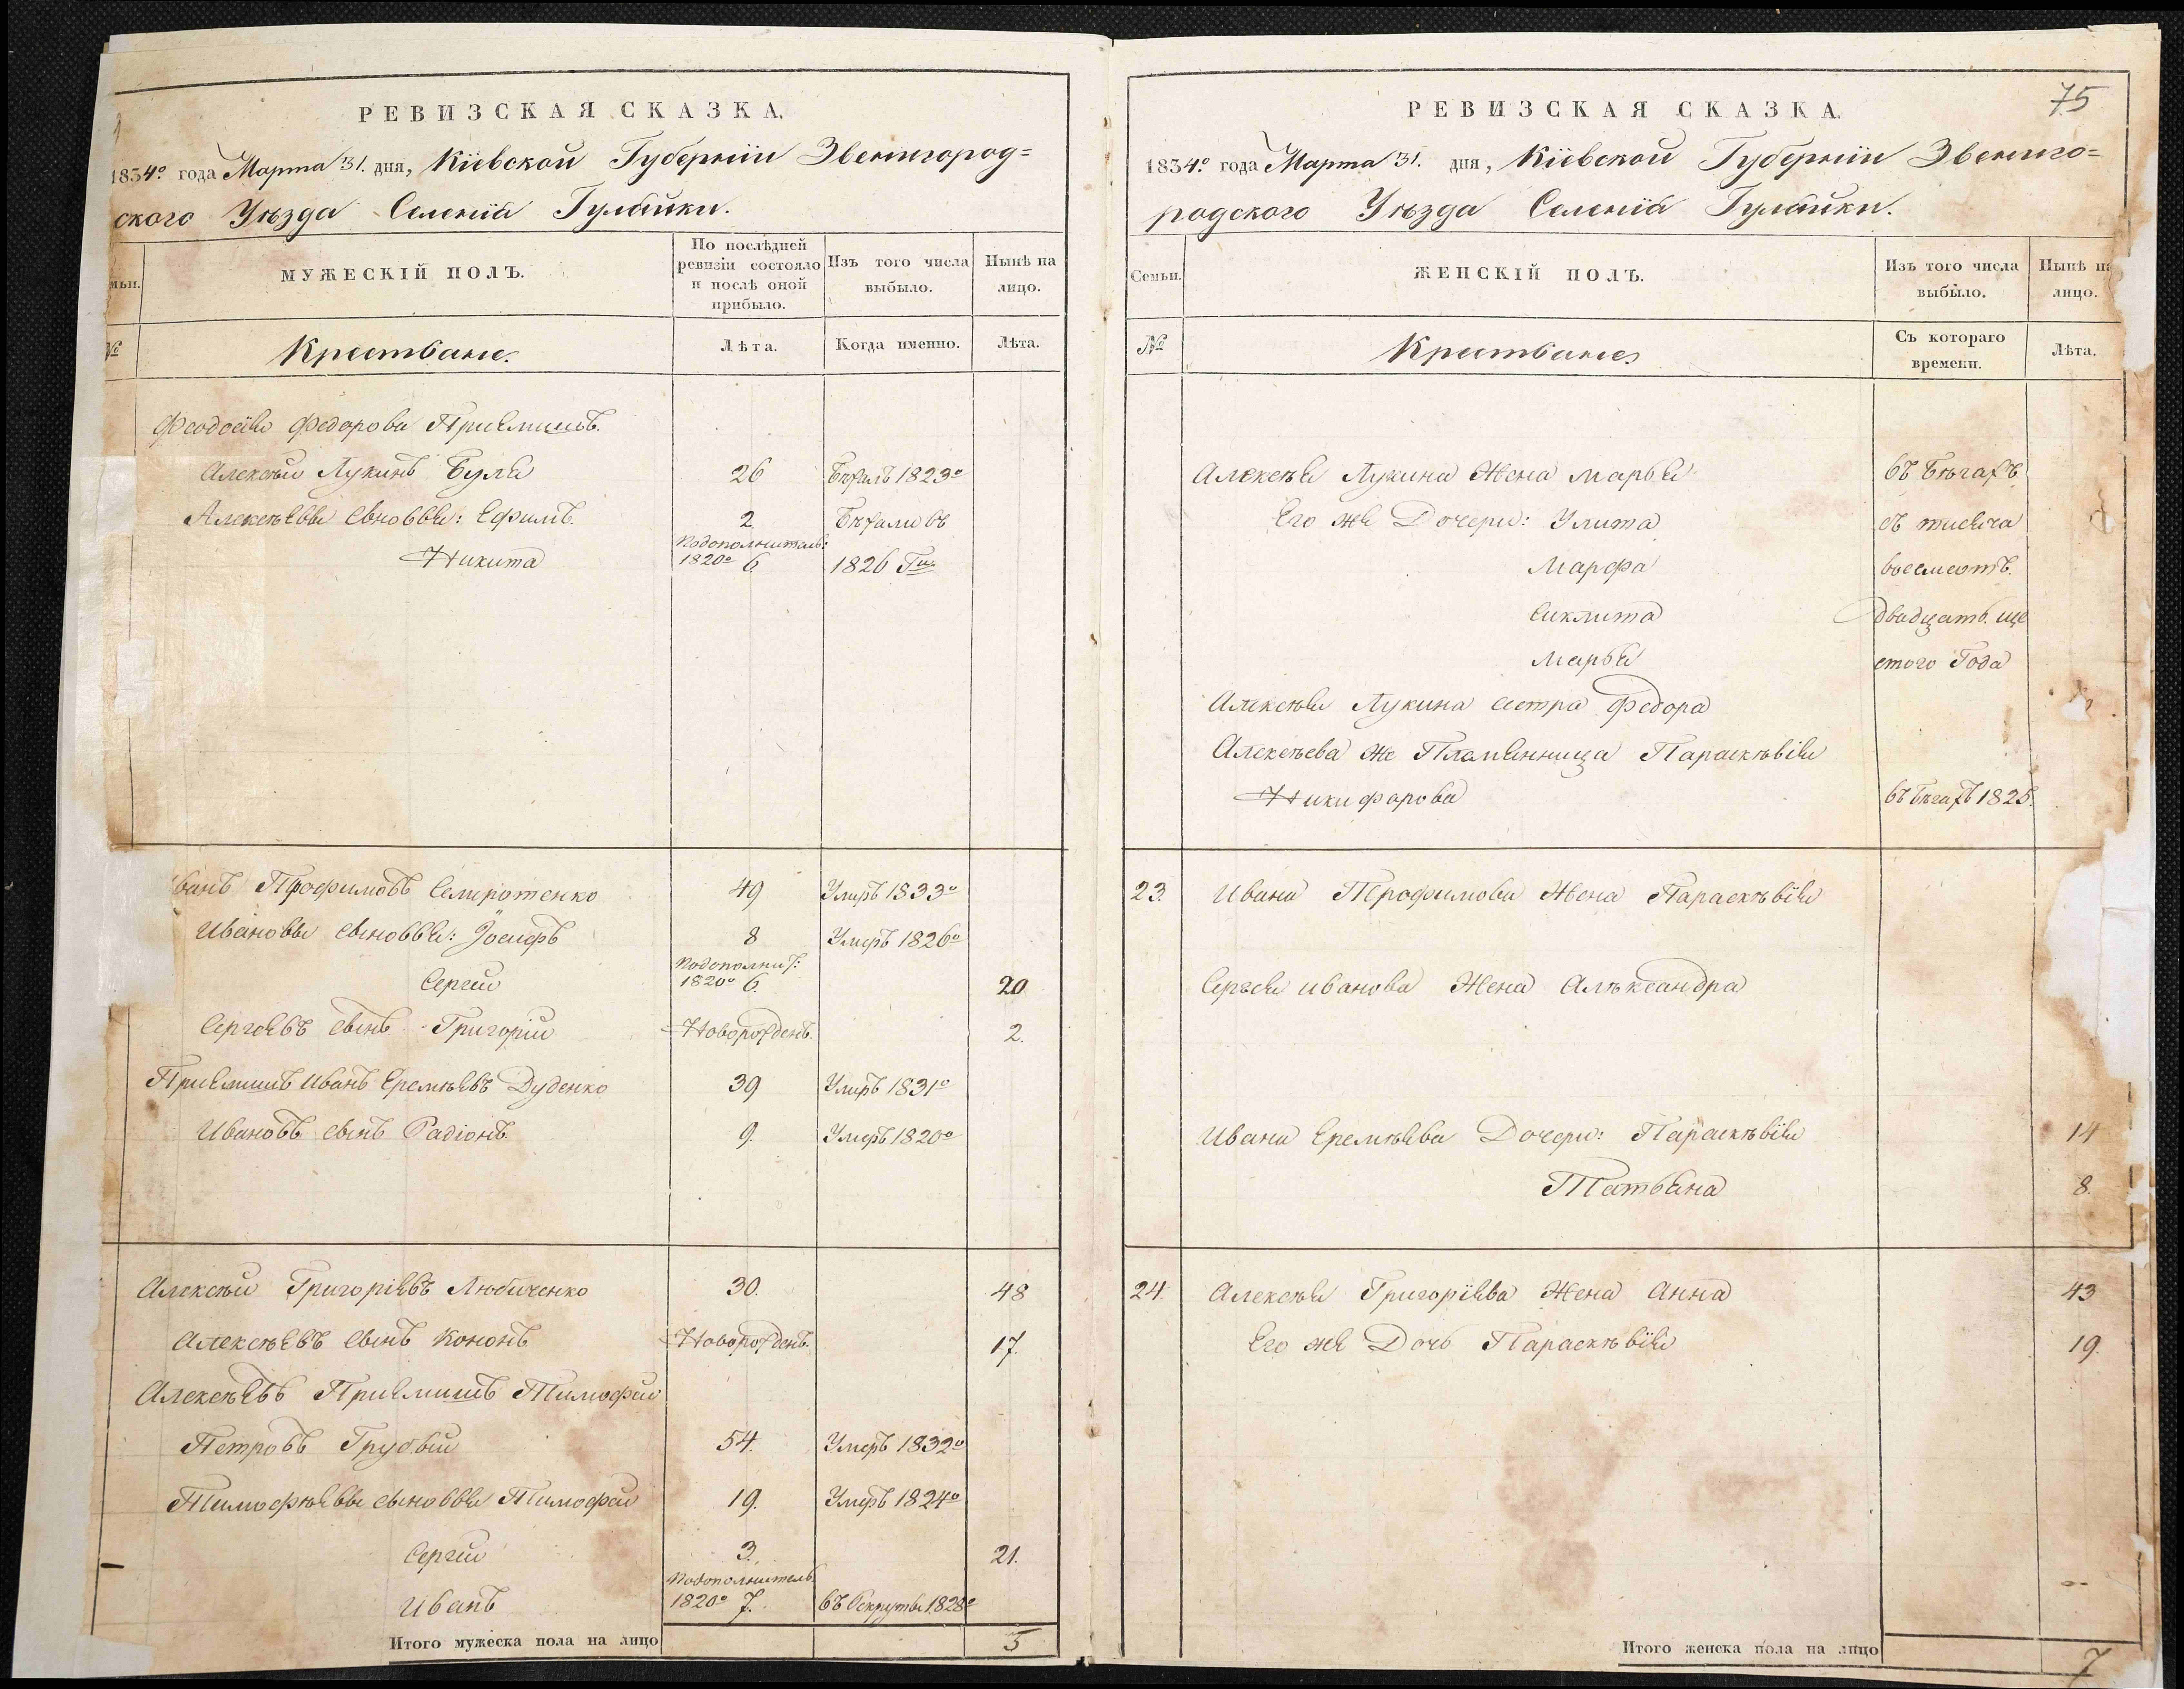 РЕВИЗСКАЯ СКАЗКА.
1834º года Марта 31. дня, Кіевской Губерніи Звенигород=
ского Уѣзда Селенія Гулайки.
мьи.
МУЖЕСКІЙ ПОЛЪ.
По послѣдней ревизіи состояло и послѣ оной прибыло.
Изъ того числа выбыло.
Нынѣ на лицо.
№
Крестьяне.
Лѣта.
Когда именно.
Лѣта.
Феодосія Федорова Приемышъ
Алексѣй Лукинъ Буля 26 Бѣжалъ 1823º
Алексѣевы сыновья: Ефимъ 2. Бѣжали въ
Подополнитель:
Никита 1820º 6. 1826 Гч.
ванъ Трофимовъ Семиротенко 49 Умеръ 1833º
Ивановы сыновья: Іосифъ 8 Умеръ 1826º
Подополнит:
Сергей 1820º 6. 20
Сергеевъ сынъ Григорій Новорожденъ. 2.
Приемышъ Иванъ Еремѣевъ Дуденко 39 Умеръ 1831º
Ивановъ сынъ Радіонъ 9. Умеръ 1820º
Алексѣй Григоріевъ Любиченко 30. 48
Алексѣевъ сынъ Кононъ Новорожденъ. 17.
Алексѣевъ Приемышъ Тимофей
Петровъ Грубый 54. Умеръ 1832º
Тимофѣевы сыновья Тимофей 19. Умеръ 1824º
Сергей 3. 21.
Подополнитель
Иванъ 1820º 7. въ Рекруты 1828º
Итого мужеска пола на лицо 5
75
РЕВИЗСКАЯ СКАЗКА.
1834º года Марта 31. дня, Кіевской Губерніи Звениго=
родского Уѣзда Селенія Гулайки.
Семьи.
ЖЕНСКІЙ ПОЛЪ.
Изъ того числа выбыло.
Нынѣ на лицо.
№
Крестьяне
Съ котораго времени.
Лѣта.
Алексѣя Лукина Жена Марья въ Бѣгахъ
Его же Дочери: Улита съ тисяча
Марфа восемсотъ.
Сиклита двадцать. ше
Марья стого Года
Алексѣя Лукина сестра Федора
Алексѣева же Племенница Параскѣвія
Никифарова въ Бѣгахъ 1825.
23. Ивана Трофимова Жена Параскѣвія
Сергея Иванова Жена Алѣксандра
Ивана Еремѣева Дочери: Параскѣвія 14
Татьяна 8.
24. Алексѣя Григоріева Жена Анна 43
Его же Дочь Параскѣвія 19.
Итого женска пола на лицо 7